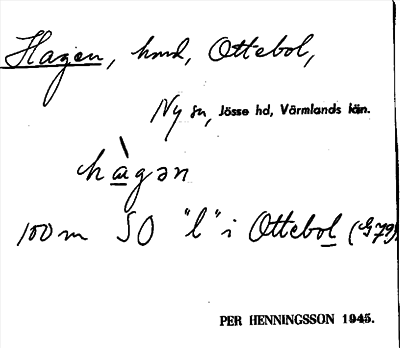 Hagen, hmd, Ottebol,
Ny sn, Jösse hd, Värmlands län.
hàgən
100 m SO "l" i Ottebol (G79)
PER HENNINGSSON 1945.